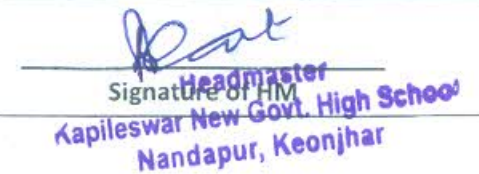 Signature of HM
Headmaster
Kapileswar New Govt. High School
Nandapur, Keonjhar